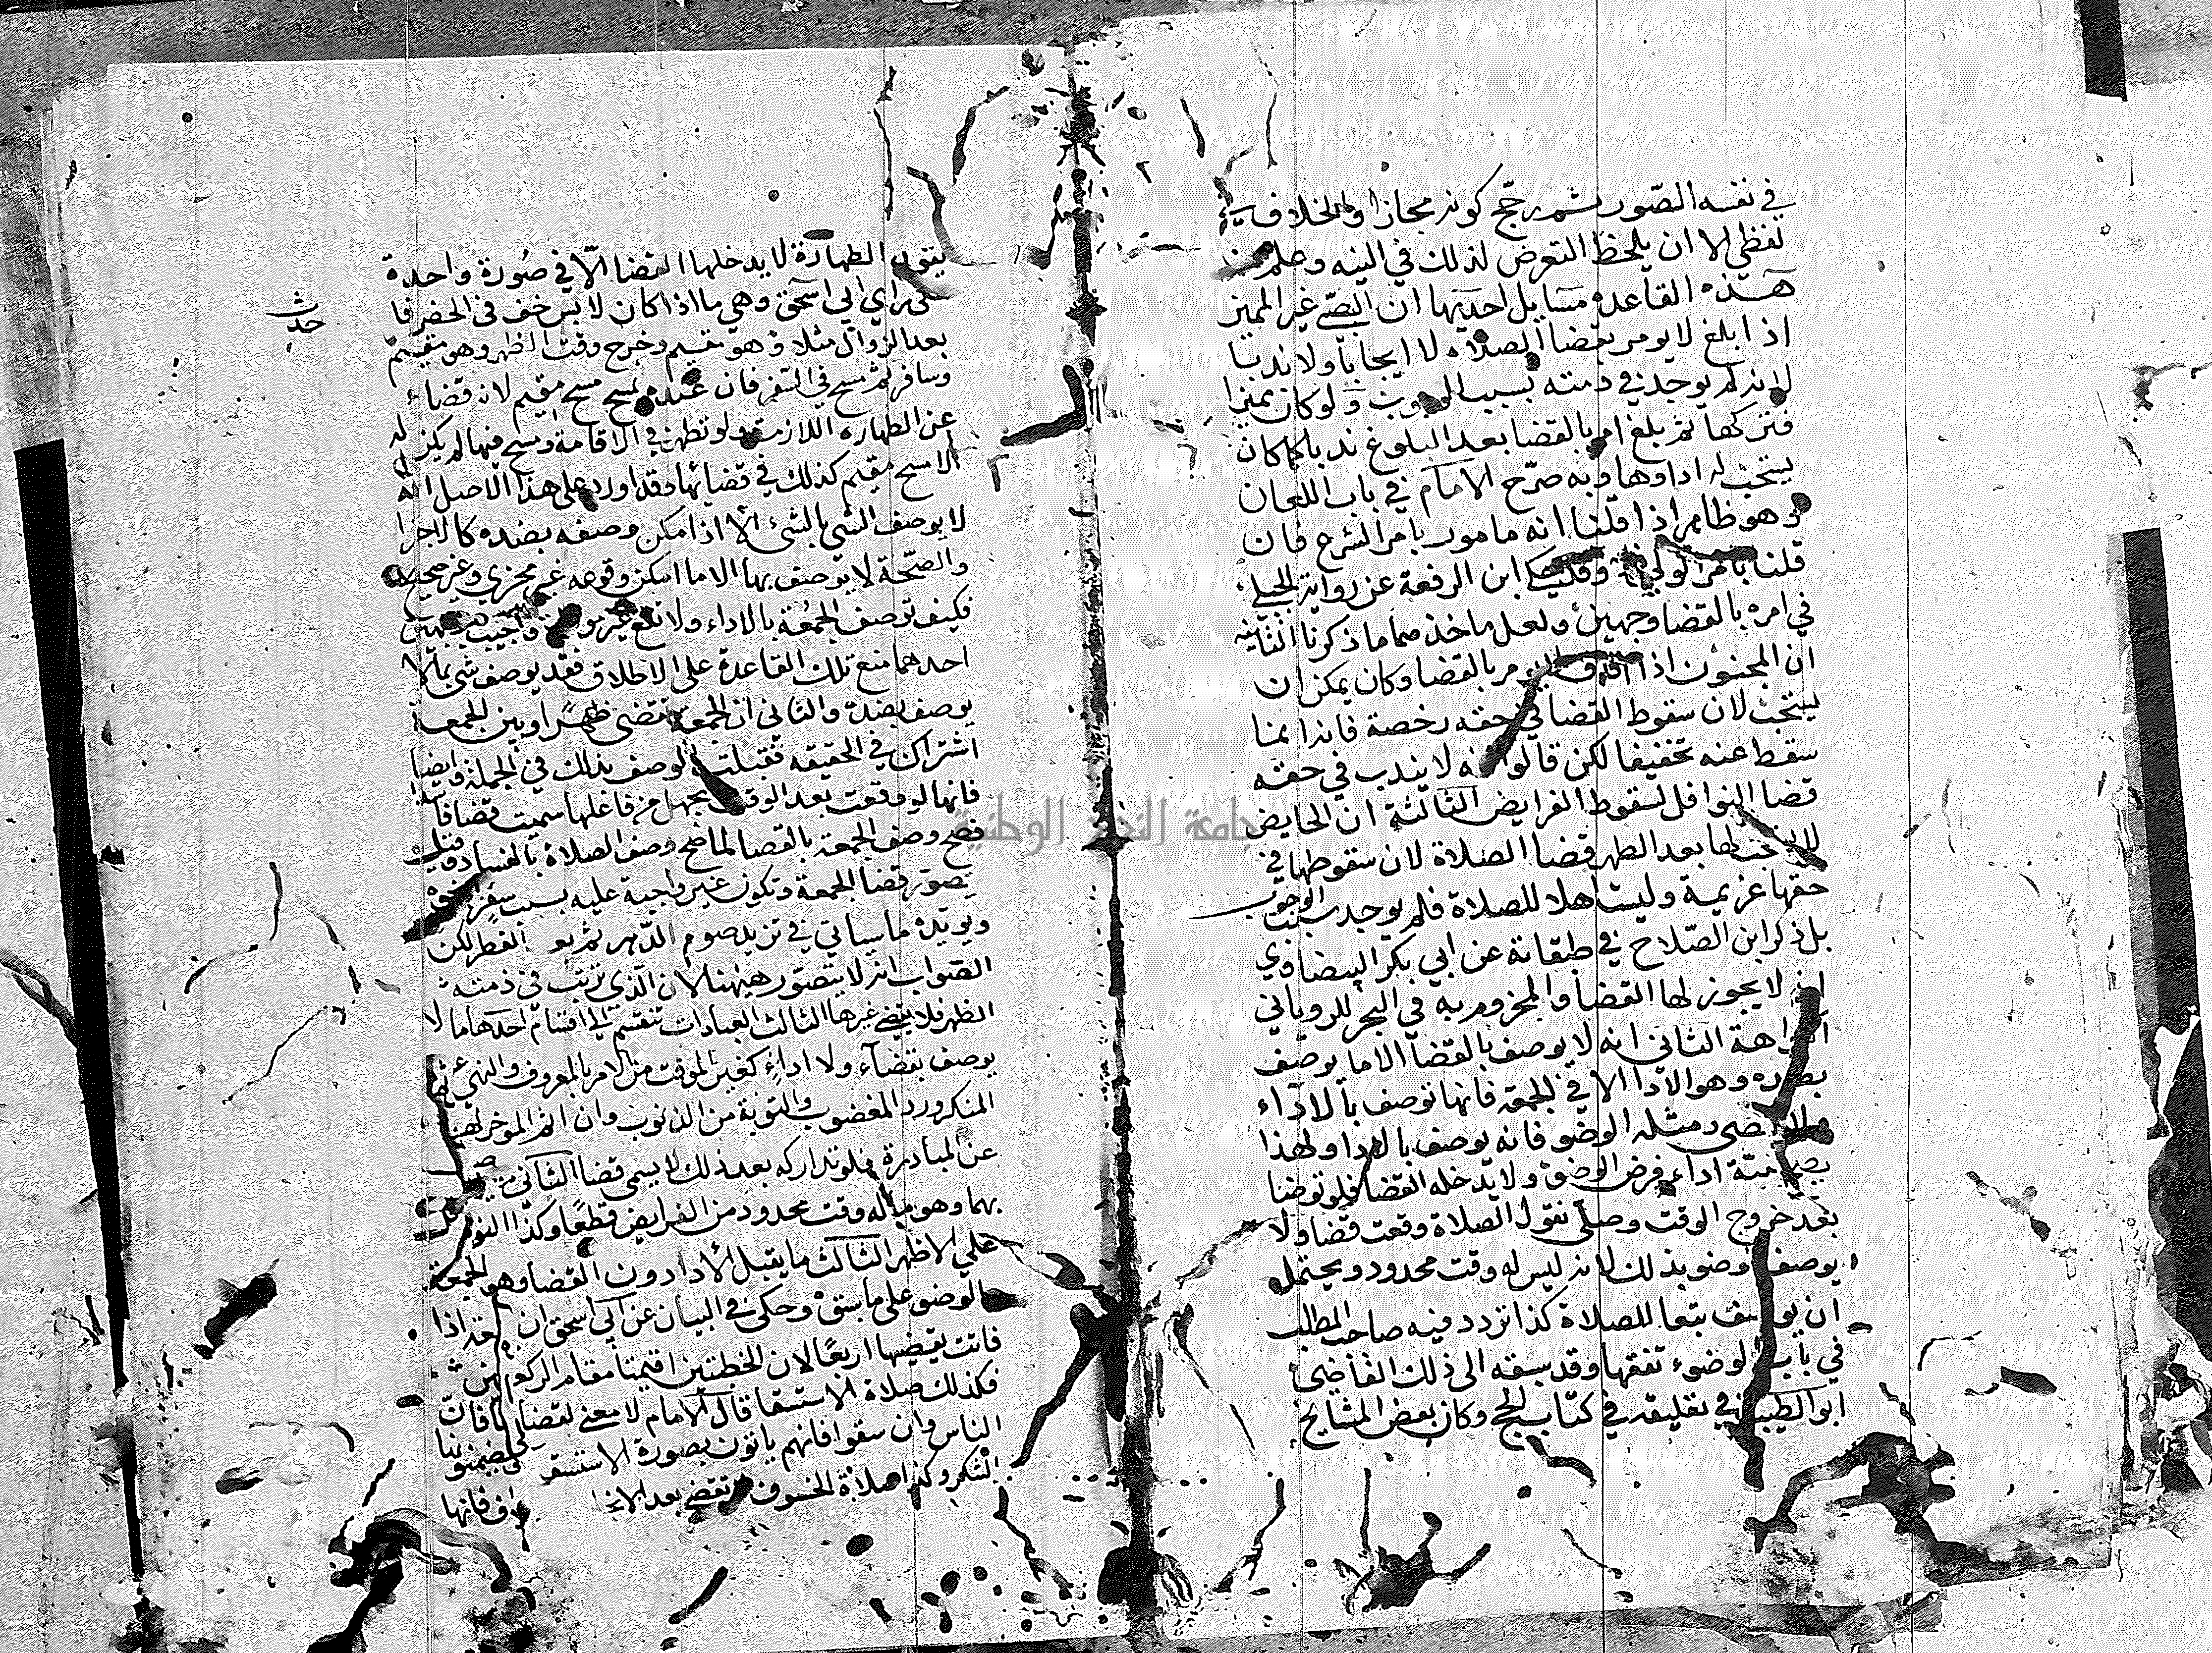 في نفسه الصور ثم رجح كونه مجازا والخلاف
لفظي الا ان يلحظ التعرض لذلك في النيه وعلم من
هذه القاعده مسايل احديها ان الصبي غير المميز
اذا بلغ لا يومر بقضا الصلاه لا ايجابا ولا ندبا
لانه لم يوجد في ذمته بسبب الوجوب ولو كان مميزا
فتركها ثم بلغ امر بالقضا بعد البلوغ ندبا كما كان
يستحب له اداوها وبه صرح الامام في باب اللعان
وهو ظاهر اذا قلنا انه مامور بامر الشرع فان
قلنا بامر الولي فلا وقد حكى ابن الرفعة عن رواية الجيلي
في امره بالقضا وجهين ولعل ماخذهما ما ذكرنا الثانيه
ان المجنون اذا افاق لا يومر بالقضا وكان يمكن ان
يستحب لان سقوط القضا في حقه رخصة فانه انما
سقط عنه تخفيفا لكن قالوا انه لا يندب في حقه
قضا النوافل لسقوط الفرايض الثالثة ان الحايض
لا يستحب لها بعد الطهر قضا الصلاة لان سقوطها في
حقها عزيمة وليست اهلا للصلاة فلم يوجد سبب الوجوب
بل ذكر ابن الصلاح في طبقاته عن ابي بكر البيضاوي
انه لا يجوز لها القضا والمجزوم به في البحر للروياني
الكراهة الثاني انه لا يوصف بالقضا الا ما يوصف
بضده وهو الادا الا في الجمعة فانها توصف بالاداء
ولا تقضى ومثله الوضو فانه يوصف بالادا ولهذا
يصح نية اداء فرض الوضو ولا يدخله القضا فلو توضا
بعد خروج الوقت وصلى نقول الصلاة وقعت قضا ولا
يوصف الوضو بذلك لانه ليس له وقت محدود ويحتمل
ان يوصف تبعا للصلاة كذا تردد فيه صاحب المطلب
في باب الوضوء تفقها وقد سبقه الى ذلك القاضي
ابو الطيب في تعليقه في كتاب الحج وكان بعض المشايخ
يقول الطهارة لا يدخلها القضا الا في صورة واحدة
على راي ابي اسحق وهي ما اذا كان لابس خف في الحضر فا
حدث
بعد الزوال مثلا وهو مقيم وخرج وقت الظهر وهو مقيم
وسافر ثم مسح في السفر فان عنده يمسح مسح مقيم لانه قضاء
عن الطهاره اللازمه ولو تطهر في الاقامة ومسح فيها لم يكن له
الا مسح مقيم كذلك في قضائها وقد اورد على هذا الاصل انه
لا يوصف الشي بالشيء الا اذا امكن وصفه بضده كالاجزا
والصحة لا يوصف بها الا ما امكن وقوعه غير مجزي وغير صحيح
فكيف توصف الجمعة بالاداء ولا تقع غير مواداة واجيب بوجهين
احدهما منع تلك القاعدة على الاطلاق فقد يوصف شي بما لا
يوصف بضده والثاني ان الجمعة تقضى ظهرا وبين الجمعة
اشتراك في الحقيقه فقبلت الوصف بذلك في الجملة وايضا
فانها لو وقعت بعد الوقت بجهل من فاعلها سميت قضا فا
فصح وصف الجمعة بالقضا كما صح وصف الصلاة بالفساد وقيل
يصور قضا الجمعة وتكون غير واجبة عليه بسبب سفر ونحوه
ويويده ما سياتي في نذر صوم الدهر ثم الفطر لكن
الصواب انه لا يتصور ههنا لان الذي ترتب في ذمته
الظهر فلا يقضى غيرها الثالث العبادات تنقسم الى اقسام احدها ما لا
يوصف بقضاء ولا اداء كغير الموقت من الامر بالمعروف والنهي عن
المنكر ورد المغصوب والتوبة من الذنوب وان اثم الموخر لها
عن المبادرة فلو تداركه بعد ذلك لا يسمى قضا الثاني ما يوصف
بهما وهو ما له وقت محدود من الفرايض قطعا وكذا النوافل
على الاظهر الثالث ما يقبل الادا دون القضا وهو الجمعة
والوضو على ما سبق وحكى في البيان عن ابي اسحق ان الجمعة اذا
فاتت يقضيها اربعا لان الخطبتين اقيمتا مقام الركعتين
فكذلك صلاة الاستسقا قال الامام لا معنى لقضايها فان
الناس وان سقوا فانهم ياتون بصورة الاستسقا
الشكر وكذا صلاة الخسوف لا تقضى بعد الانجلا فانها